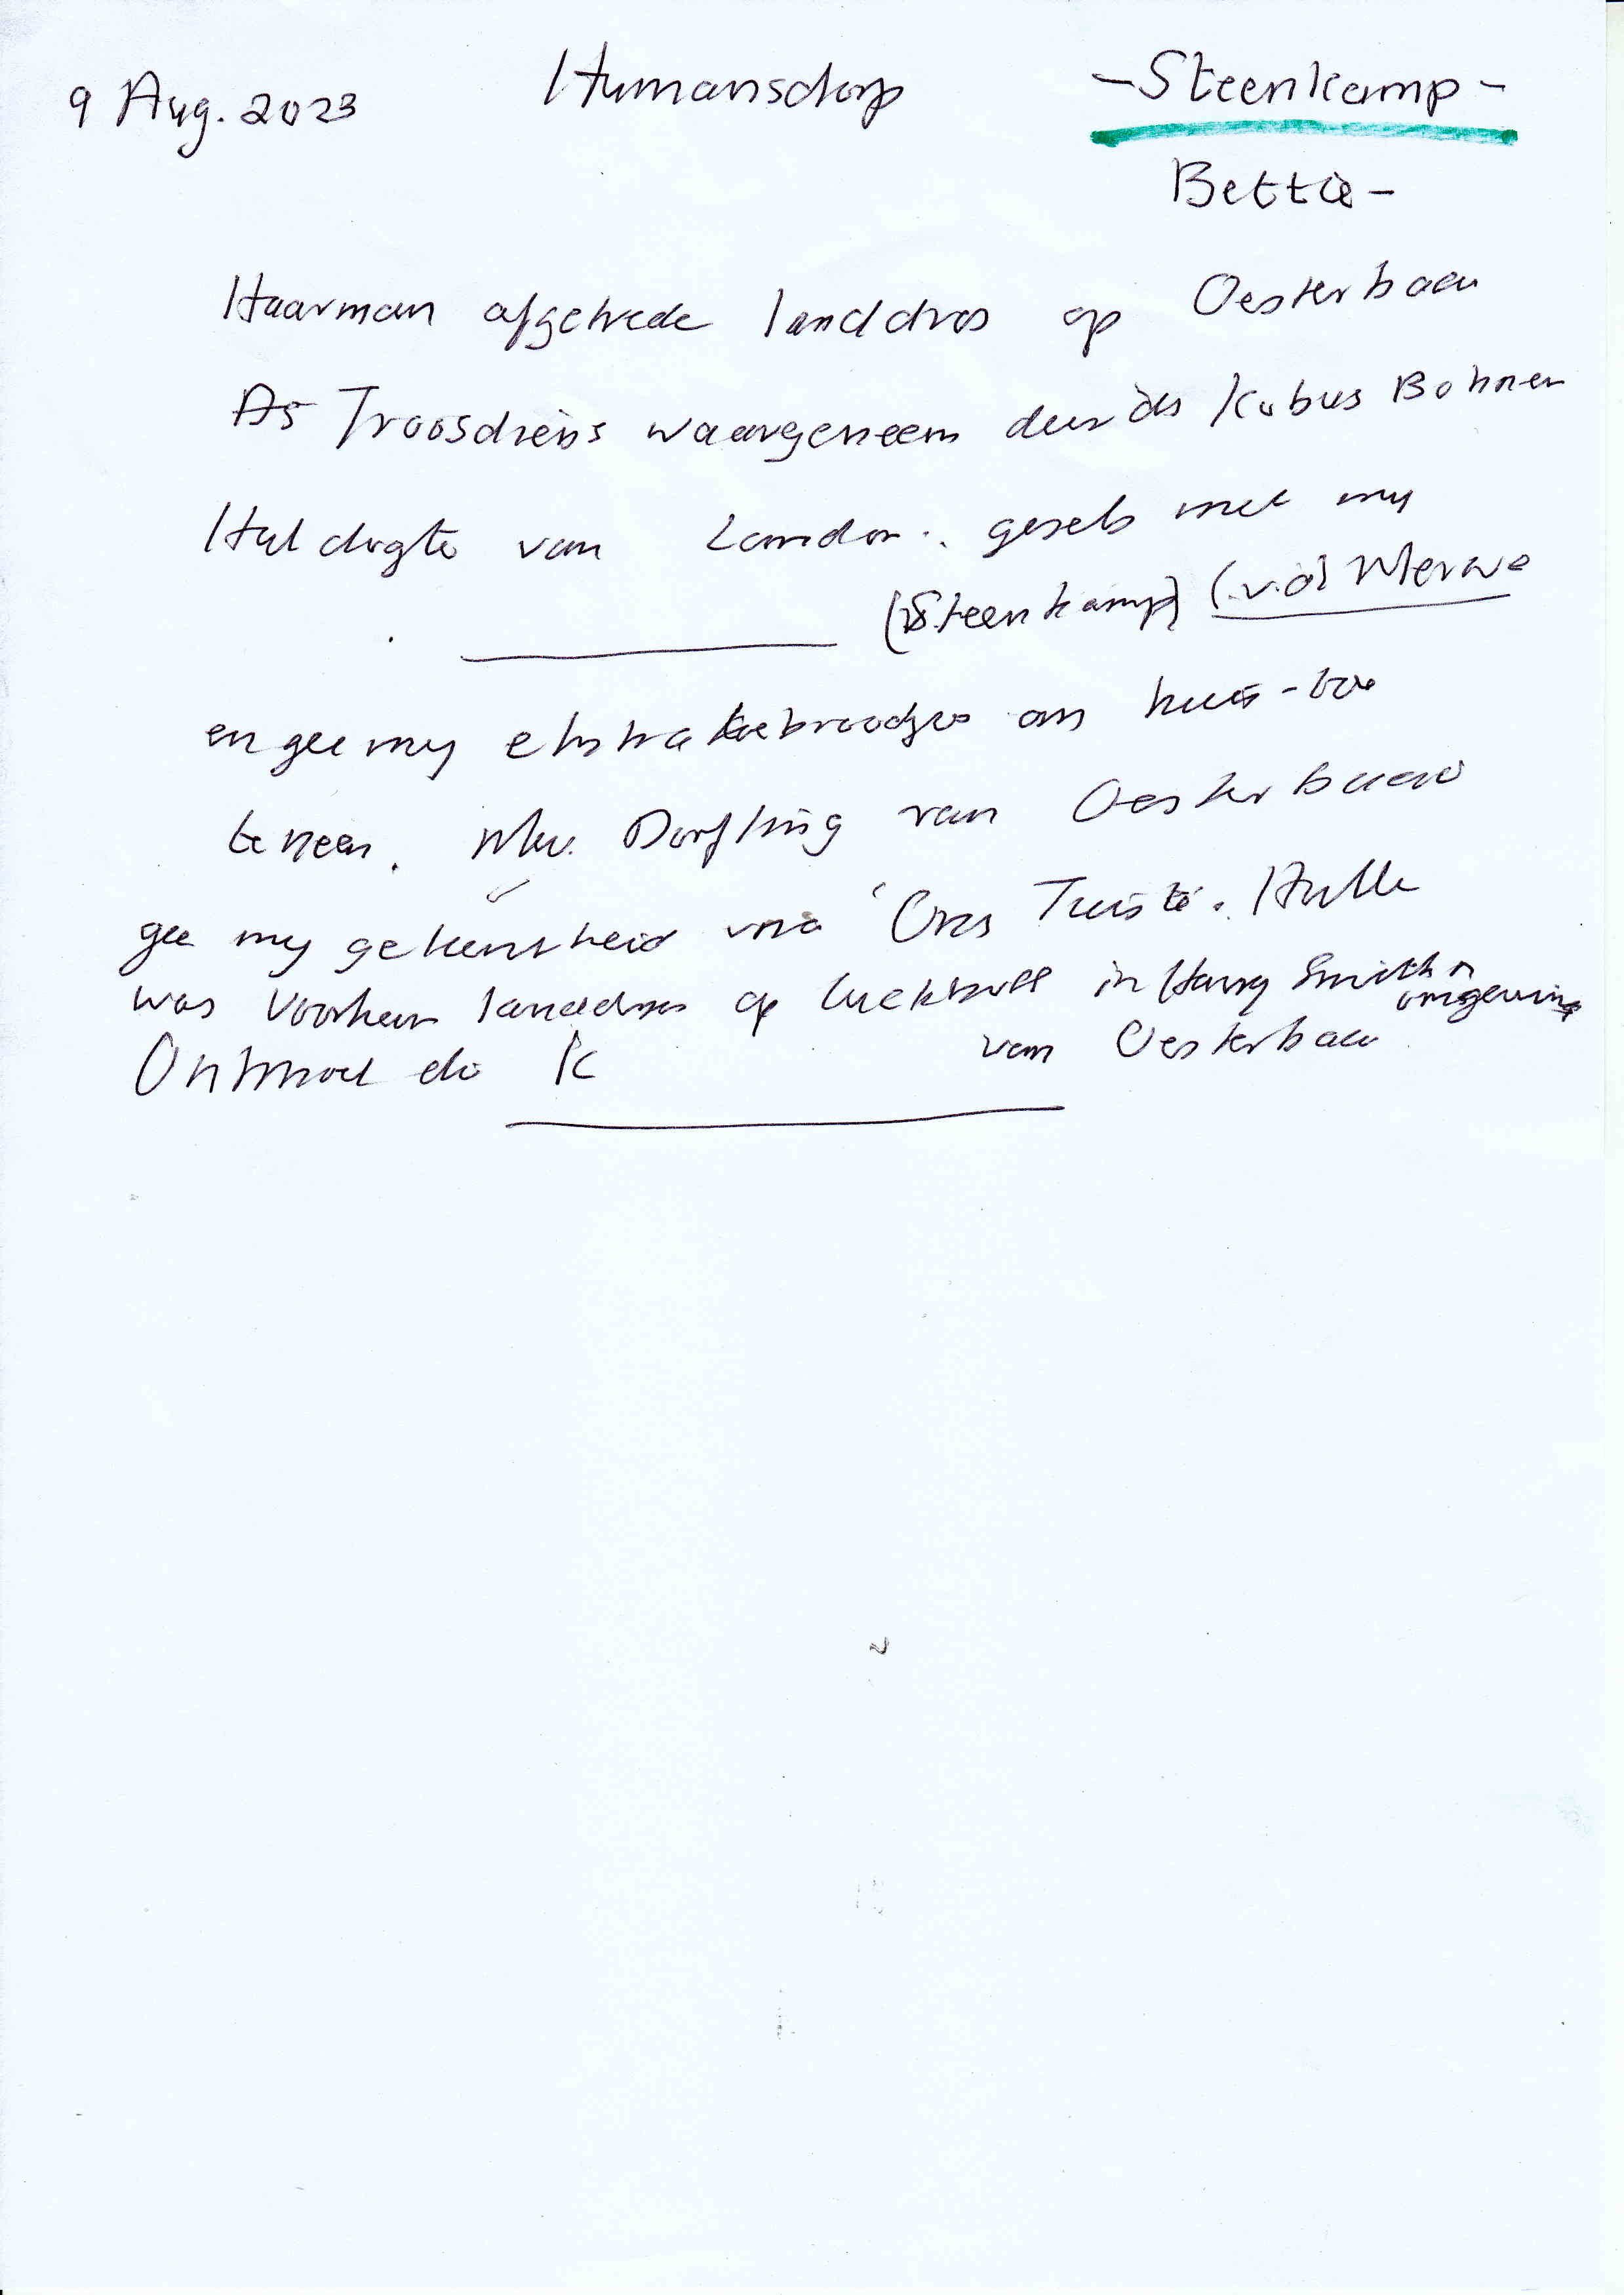 9 Aug. 2023 Humansdorp -Steenkamp-
Bettie-
Haar man afgetrede landdros op Oesterbaai
As Troosdiens waargeneem deur ds Kobus Bohnen
Huldigte van gesels met my
(Steenkamp) (v.d Merwe
en gee my ekstra broodjies om huis-toe
te neem. Mev. Dorfling van Oesterbaai
gee my geleentheid na Ons Tuiste. Hulle
was voorheen landdros op in Harry Smith
omgewing
Onthou die K van Oesterbaai